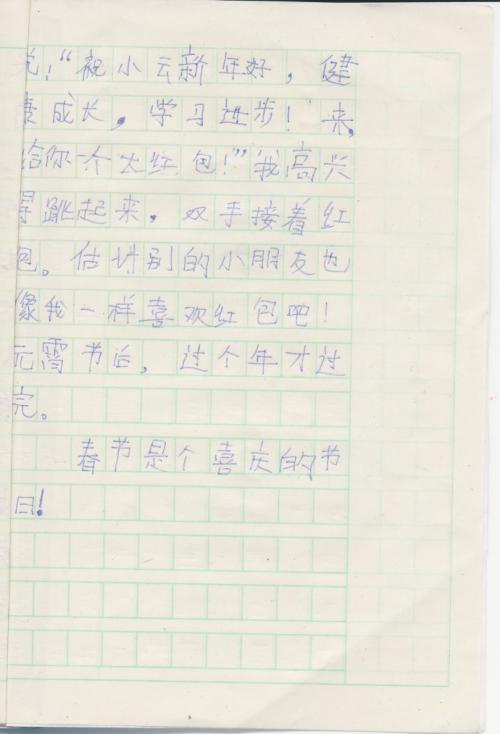 说！“祝小云新年好，健
康成长，学习进步！来，
给你一个大红包！”我高兴
得跳起来，双手接着红
包。估计别的小朋友也
像我一样喜欢红包吧！
元宵节后，这个年才过
完。
春节是个喜庆的节
日！